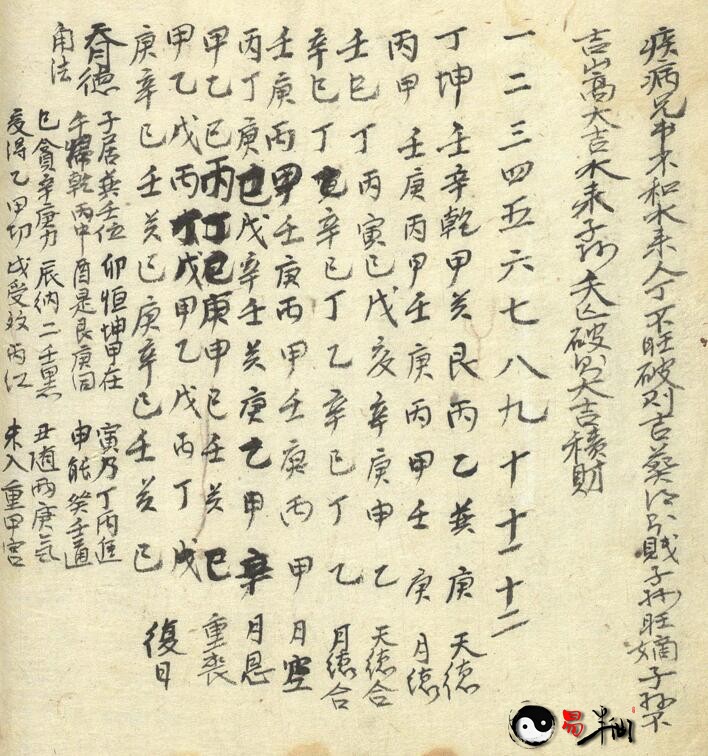 疾病兄弟不和水来人丁不旺破则吉葵水出贱子孙旺嫡子孙不
吉山高大吉水来子孙夭亡破出大吉積財
一二三四五六七八九十十一十二
丁坤壬辛乾甲癸艮丙乙巽庚 天德
丙甲壬庚丙甲壬庚丙甲壬庚 月德
壬巳丁丙寅己戊亥辛庚申乙 天德合
辛巳丁乙辛巳丁乙辛巳丁乙 月德合
壬庚丙甲壬庚丙甲壬庚丙甲 月空
丙丁庚己戊辛壬癸庚乙甲辛 月恩
甲乙巳丙丁巳庚申巳壬癸巳 重喪
甲乙戊丙丁戊甲乙戊丙丁戊
庚辛巳壬癸巳庚辛巳壬癸巳 復日
德
用法
子居巽壬位 卯恒坤甲在 寅乃丁丙進
午歸乾丙中 酉是艮庚同 申能癸壬通
巳貪辛庚力 辰納二壬黑 丑随兩庚氣
亥得乙甲助 戌受双丙江 未入重甲宮
易